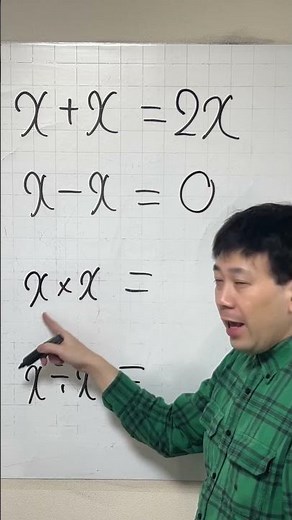 x + x = 2x
x - x = 0
x × x =
x ÷ x =